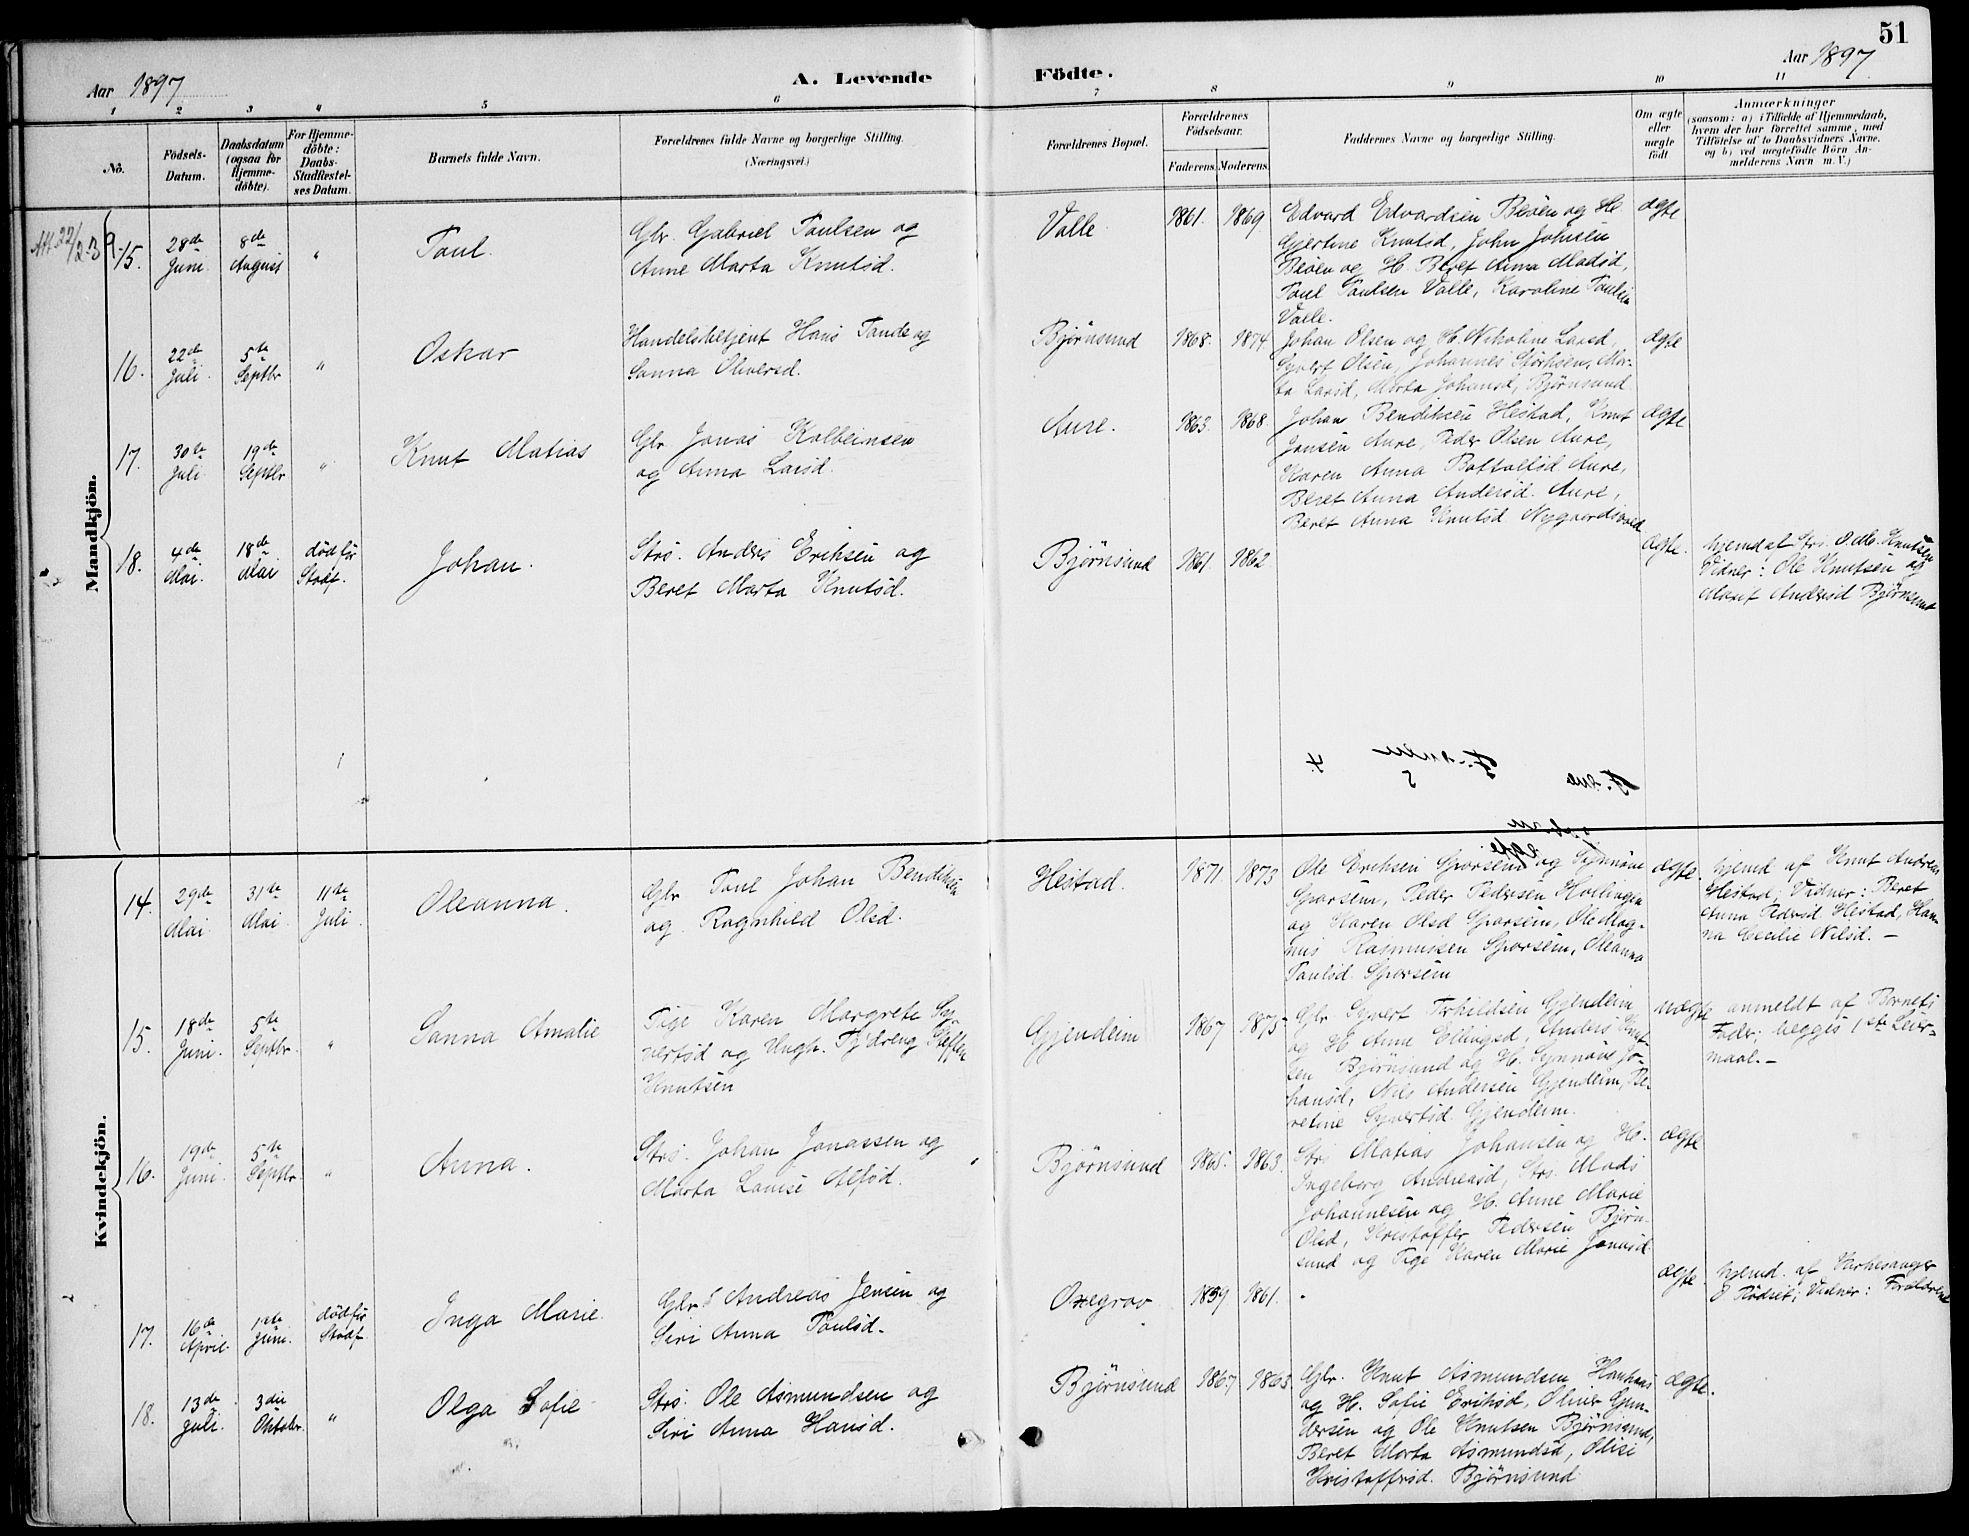 51
Aar 1897
A. Levende Födte.
Aar 1897
1 2 3 4 5 6 7 8 9 10 11
No.
Födsels-
Datum.
Daabsdatum
(ogsaa for
Hjemme-
döbte).
For Hjemme-
döbte:
Daabs-
Stadfæstel-
ses Datum.
Barnets fulde Navn.
Forældrenes fulde Navne og borgerlige Stilling.
(Næringsvei.)
Forældrenes Bopæl.
Forældrenes
Födselsaar.
Faderens. Moderens.
Faddernes Navne og borgerlige Stilling.
Om ægte
eller
uægte
födt
Anmærkninger
(saasom: a) i Tilfælde af Hjemmedaab,
hvem der har forrettet samme, med
Tilföielse af to Daabsvidners Navne,
og b) ved uægtefödte Börn An-
melderens Navn m. V.)
Mandkjön.
15.
28de
Juni
8de
August
"
Paul.
Gbr. Gabriel Paulsen og
Anne Marta Knutsd.
Valle
1861. 1869
Edvard Edvardsen Beöen og H.
Gjertine Knutsd, John Johnsen
Beöen og H. Beret Anna Madsd,
Paul Paulsen Valle, Karoline Paulsen
Valle.
ægte
16.
22de
Juli
5te
Septbr
"
Oskar
Handelsbetjent Hans Tande og
Sanna Oliversd.
Björnsund
1868. 1874
Johan Olsen og H. Nikoline Larsd,
Syvert Olsen, Johannes Störksen, Mar-
ta Larsd, Marta Johansd, Björnsund
ægte
17.
30te
Juli
19de
Septbr
"
Knut Matias
Gbr Jonas Kolbeinsen
og Anna Larsd.
Aure.
1863. 1868.
Johan Bendiksen Hestad, Knut
Jansen Aure, Peder Olsen Aure,
Karen Anna Aure,
Beret Anna Andersd. Aure,
Beret Anna Knutsd
ægte
18.
4de
Mai.
18de
Mai
död för
Stadf.
Johan.
Strs. Anders Eriksen og
Beret Marta Knutsd.
Björnsund
1861. 1862
ægte.
hjemd af Strs. O. M. Knutsen
Vidner: Ole Knutsen og
Marit Andersd Björnsund
Kvindekjön.
14.
29de
Mai
31te
Mai
11te
Juli
Oleanna.
Gbr Paul Johan Bendiksen
og Ragnhild Olsd.
Hestad.
1871 1873
Ole Eriksen Sporsem og Synnöve
Sporsem, Peder Pedersen Hollingen
og Karen Olsd Sporsem, Ole Mag-
nus Rasmussen Sporsem, Oleanna
Paulsd Sporsem
ægte.
hjemd af Knut Andersen
Hestad; Vidner: Beret
Anna Pedersd Hestad, Han-
na Cecilie Nilsd. —
15.
18de
Juni.
5te
Septbr.
"
Sanna Amalie
Pige Karen Margrete Sy-
vertsd og Ungk. Fjdreng Steffen
Knutsen
Gjendeim
1867 1875
Gbr Syvert Gjendeim
og H Anne Ellingsd, Anders Knut-
sen Björnsund og H. Synnöve Jo-
hansd, Nils Andersen Gjendeim, Be-
retine Syvertsd. Gjendeim.
uægte
anmeldt af Barnets
Fader; begges 1ste Leier-
maal. —
16.
19de
Juni
5te
Septbr.
"
Anna.
Strs. Johan Jonassen og
Marta Lovise Alfsd.
Björnsund
1865. 1863.
Strs Matias Johansen og H.
Ingeborg Andreasd, Strs. Mads
Johannesen og H. Anne Marie
Olsd, Kristoffer Pedersen Björn-
sund og Pige Karen Marie Jonasd
ægte
17.
16de
April.
1ste
Juni.
död för
Stadf
Inga Marie.
Gbr. Andreas Jensen og
Siri Anna Paulsd.
Oxegrav
1859 1861.
ægte.
hjemd. af Kirkesanger
Rödset; Vidner: Forældrene
18.
13de
Juli.
3die
Oktober
"
Olga Sofie
Strs. Ole Asmundsen og
Siri Anna Hansd.
Björnsund
1867 1863
Gbr. Knut Asmundsen Haukaas
og H. Sofie Eriksd, Oliver Gun-
dersen og Ole Knutsen Björnsund,
Beret Marta Asmundsd, Olise
Kristoffersd. Björnsund
ægte.